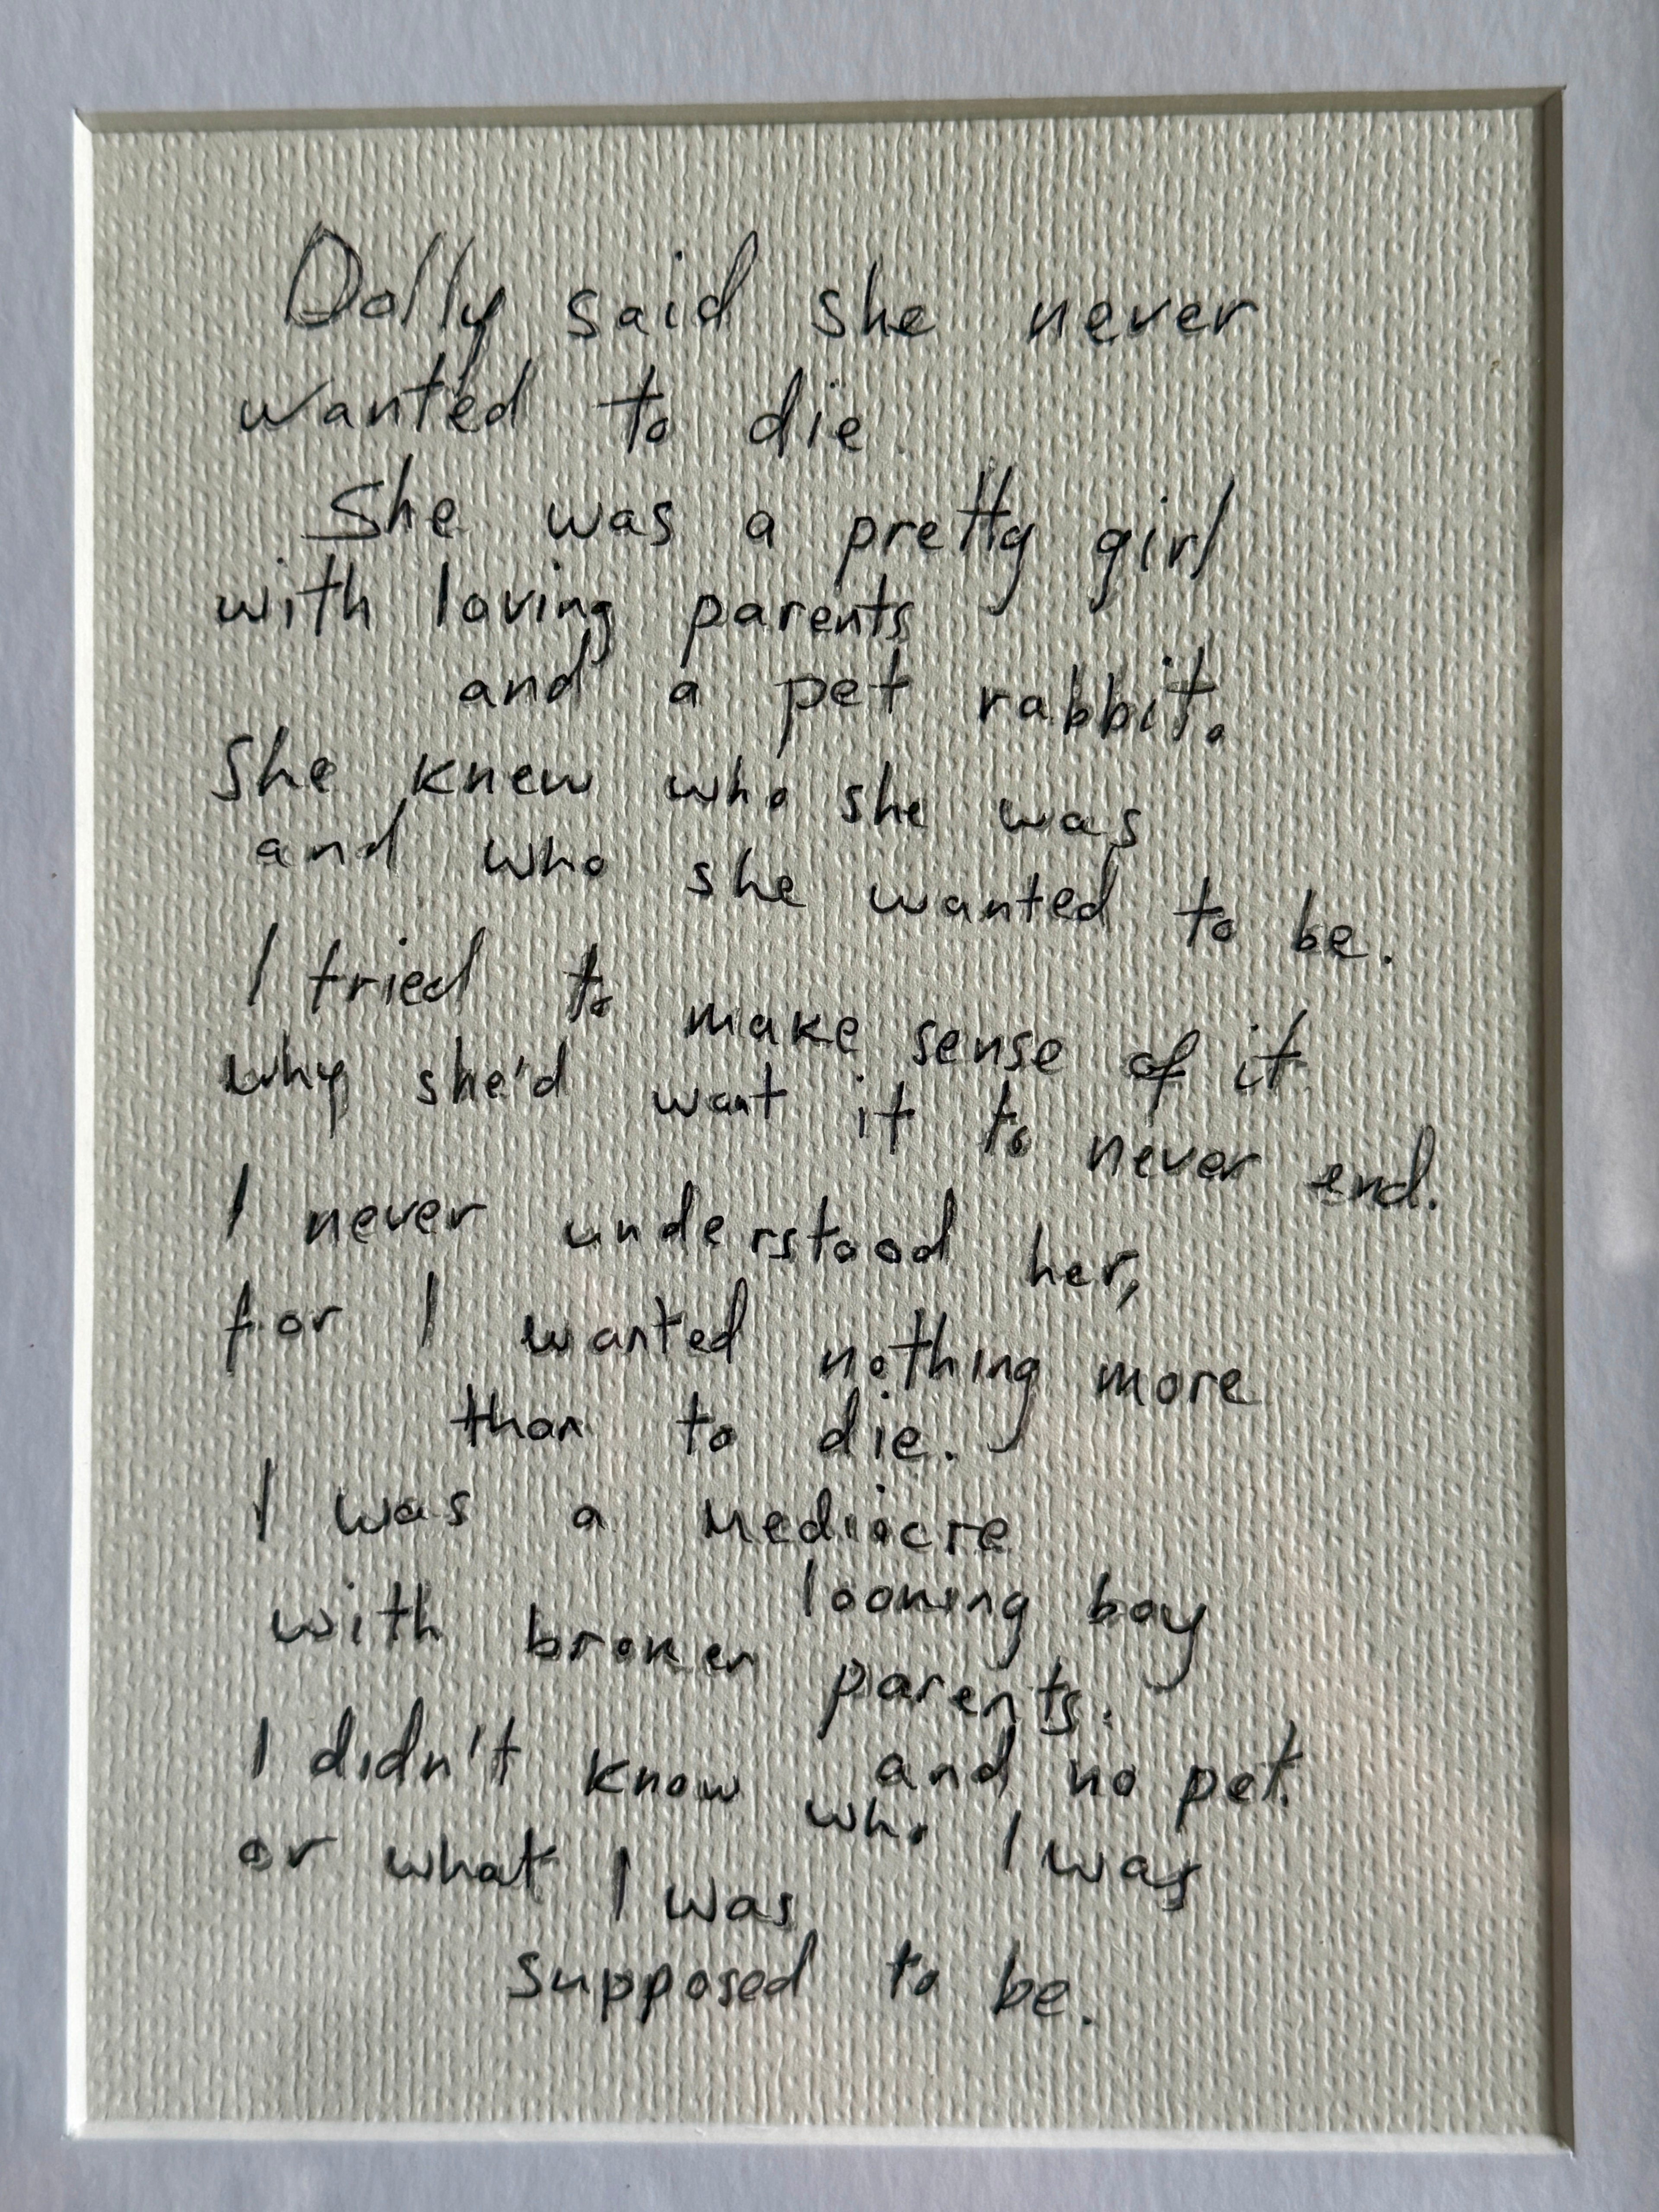 Dolly said she never
wanted to die.
She was a pretty girl
with loving parents
and a pet rabbit.
She knew who she was
and who she wanted to be.
I tried to make sense of it
why she'd want it to never end.
I never understood her,
for I wanted nothing more
than to die.
I was a mediocre
looking boy
with broken parents.
and no pet.
I didn't know who I was
or what I was
supposed to be.